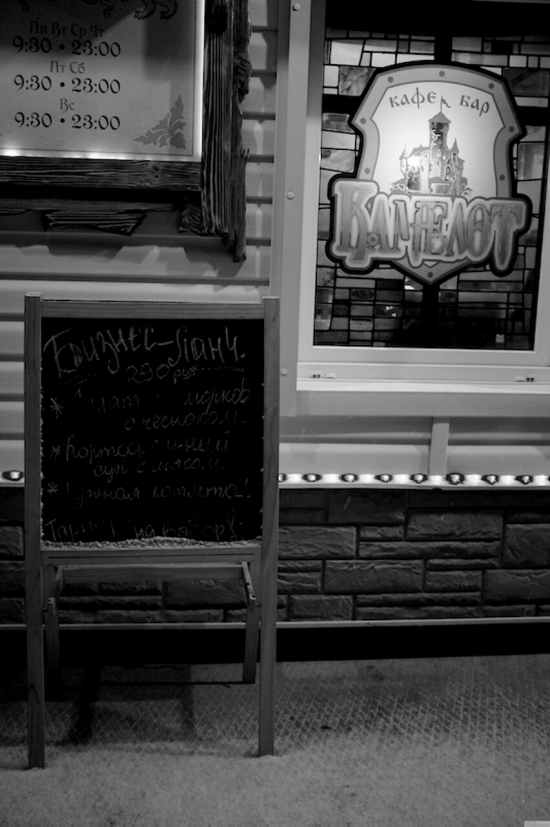 Пн Вт Ср Чт
9:30 • 23:00
Пт Сб
9:30 • 23:00
Вс
9:30 • 23:00
кафе бар
Камелот
Бизнес-Ланч.
290 руб
* Салат с морков
с чесноком.
*
суп с мясом.
* Куриная котлета!
Гарнир на выбор!